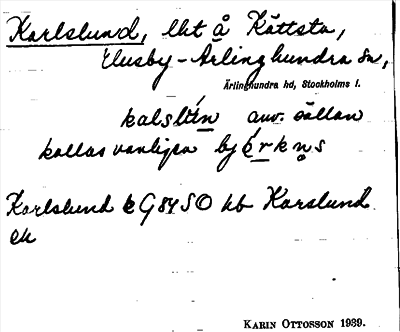 Karlslund, lht å Kättsta,
Husby-Ärlinghundra sn,
Ärlinghundra hd, Stockholms l.
kalslún anv. sällan
kallas vanligen bjǿrkns
Karlslund GS4SO hb Karslund
ek
KARIN OTTOSSON 1939.